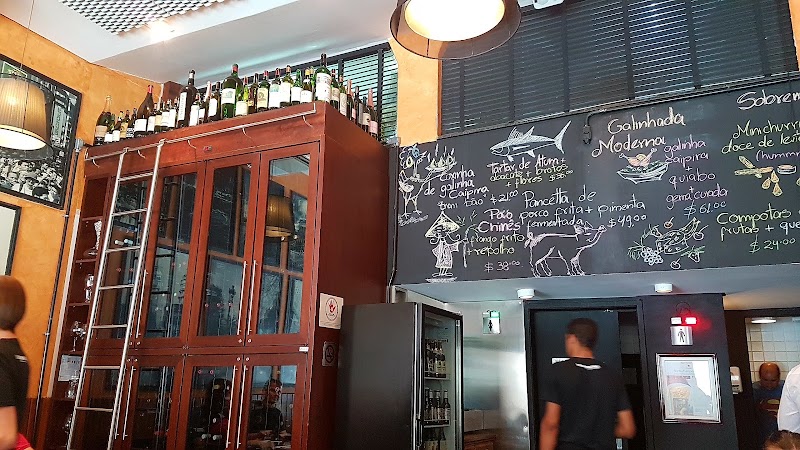 Coxinha
de galinha
Caipira
em
bao + 21.00
Tartar de Atum +
abacate + brotos
+ flores $ 36.00
Pão
Chinês
frango frito
+ repolho
$ 38.00
Pancetta de
porco frita + pimenta
fermentada
$ 49.00
Galinhada
Moderna
galinha
caipira
+
quiabo
+
gema curada
$ 61.00
Sobrem
Minichurr
doce de lei
(humm
Compotas
frutas + que
$ 24.00